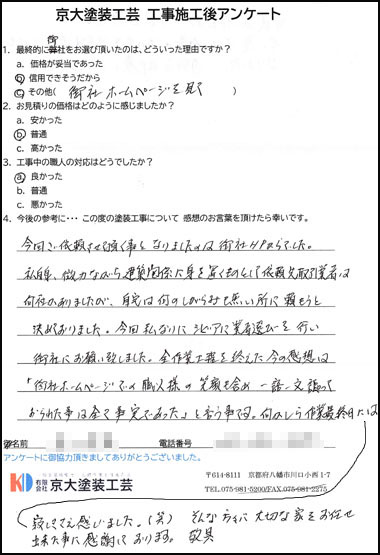 京大塗装工芸 工事施工後アンケート
1. 最終的に御社をお選び頂いたのは、どういった理由ですか？
a. 価格が妥当であった
b. 信用できそうだから
c. その他( 御社ホームページを見て )
2. お見積りの価格はどのように感じましたか？
a. 安かった
b. 普通
c. 高かった
3. 工事中の職人の対応はどうでしたか？
a. 良かった
b. 普通
c. 悪かった
4. 今後の参考に・・・ この度の塗装工事について 感想のお言葉を頂けたら幸いです。
今回ご依頼させて頂く事となりましたのは御社HPからでした。
私自身、微力ながら建築関係に身を置くものとして依頼先取引業者は
何社かありましたが、自宅は何のしがらみも無い所に頼もうと
決めておりました。今回私なりにシビアに業者選びを行い
御社にお願い致しました。全作業工程を終えた今の感想は
「御社ホームページでの職人様の笑顔も含め一語一文謳って
おられた事は全て事実であった」と言う事です。何かしら作業最終日には
お名前 電話番号
アンケートに御協力頂きましてありがとうございました。
KD 有限会社 京大塗装工芸
〒614-8111 京都府八幡市川口小西 1-7
TEL.075-981-5200/FAX.075-981-2275
寂しささえ感じました。(笑) そんな方々に大切な家をお任せ
出来た事に感謝しております。 敬具